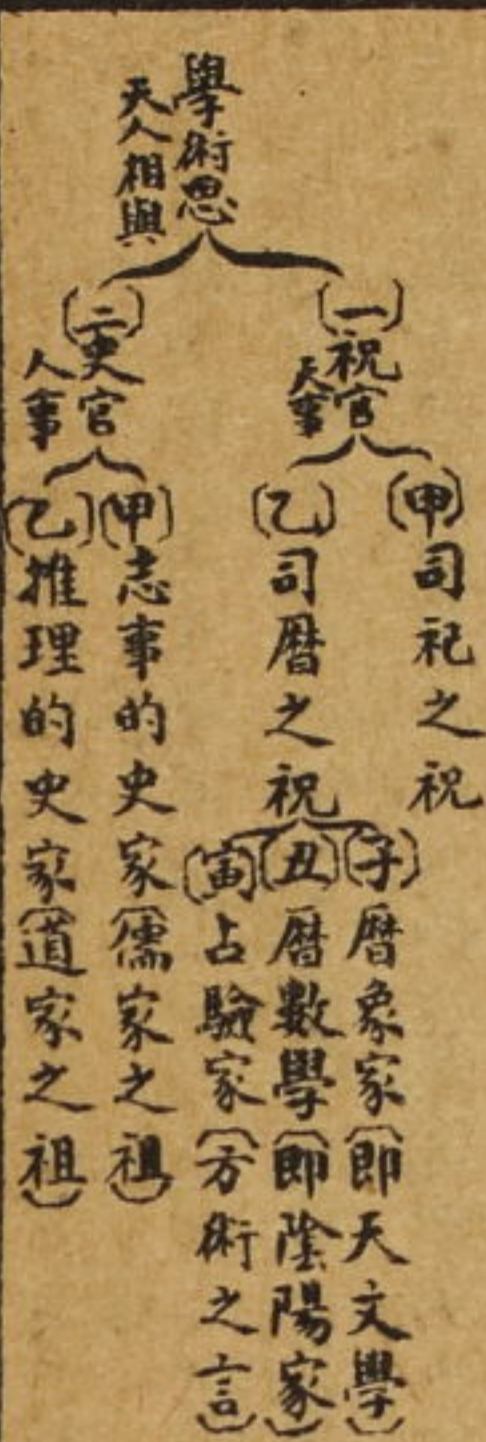 學術思
天人相與
（一）祝官
天事
（甲）司祀之祝
（乙）司曆之祝
（子）曆象家（即天文學）
（丑）曆數學（即陰陽家）
（寅）占驗家（方術之言）
（二）史官
人事
（甲）志事的史家（儒家之祖）
（乙）推理的史家（道家之祖）